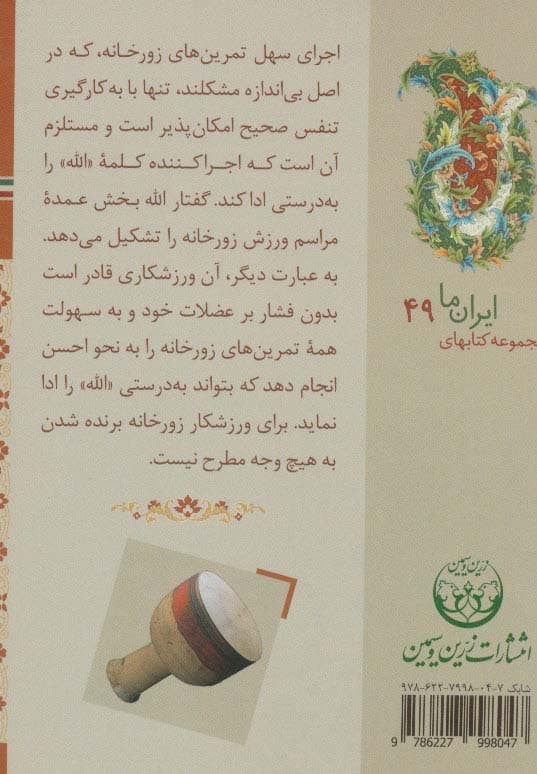 اجرای سهل تمرین‌های زورخانه، که در
اصل بی‌اندازه مشکلند، تنها با به‌کارگیری
تنفس صحیح امکان‌پذیر است و مستلزم
آن است که اجراکننده کلمهٔ «الله» را
به‌درستی ادا کند. گفتار الله بخش عمدهٔ
مراسم ورزش زورخانه را تشکیل می‌دهد.
به عبارت دیگر، آن ورزشکاری قادر است
بدون فشار بر عضلات خود و به سهولت
همهٔ تمرین‌های زورخانه را به نحو احسن
انجام دهد که بتواند به‌درستی «الله» را ادا
نماید. برای ورزشکار زورخانه برنده شدن
به هیچ وجه مطرح نیست.
ایران ما ۴۹
جموعه کتابهای
زرین و سیمین
انتشارات زرین و سیمین
شابک ۷-۰۴-۷۹۹۸-۶۲۲-۹۷۸
9 786227 998047